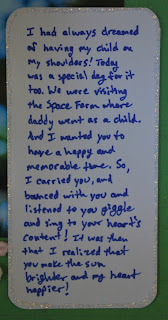 I had always dreamed
of having my child on
my shoulders! Today
was a special day for it
too. We were visiting
the Space Farm where
daddy went as a child.
And I wanted you to
have a happy and
memorable time. So,
I carried you, and
bounced with you and
listened to you giggle
and sing to your heart's
content! It was then
that I realized that
you make the sun
brighter and my heart
happier!